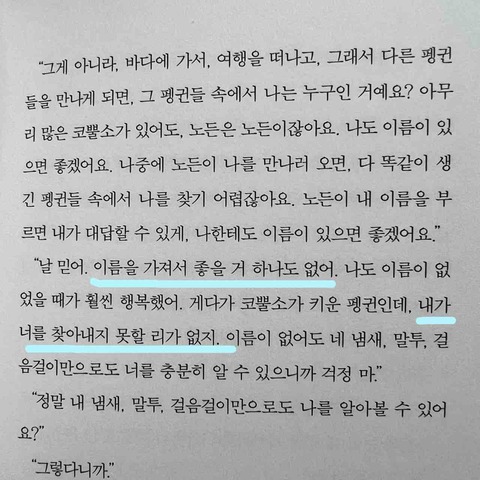 “그게 아니라, 바다에 가서, 여행을 떠나고, 그래서 다른 펭귄
들을 만나게 되면, 그 펭귄들 속에서 나는 누구인 거예요? 아무
리 많은 코뿔소가 있어도, 노든은 노든이잖아요. 나도 이름이 있
으면 좋겠어요. 나중에 노든이 나를 만나러 오면, 다 똑같이 생
긴 펭귄들 속에서 나를 찾기 어렵잖아요. 노든이 내 이름을 부
르면 내가 대답할 수 있게, 나한테도 이름이 있으면 좋겠어요.”
“날 믿어. 이름을 가져서 좋을 거 하나도 없어. 나도 이름이 없
었을 때가 훨씬 행복했어. 게다가 코뿔소가 키운 펭귄인데, 내가
너를 찾아내지 못할 리가 없지. 이름이 없어도 네 냄새, 말투, 걸
음걸이만으로도 너를 충분히 알 수 있으니까 걱정 마.”
“정말 내 냄새, 말투, 걸음걸이만으로도 나를 알아볼 수 있어
요?”
“그렇다니까.”